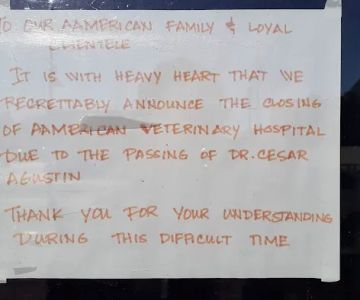 TO OUR AAMERICAN FAMILY & LOYAL
CLIENTELE
IT IS WITH HEAVY HEART THAT WE
REGRETTABLY ANNOUNCE THE CLOSING
OF AAMERICAN VETERINARY HOSPITAL
DUE TO THE PASSING OF DR. CESAR
AGUSTIN
THANK YOU FOR YOUR UNDERSTANDING
DURING THIS DIFFICULT TIME